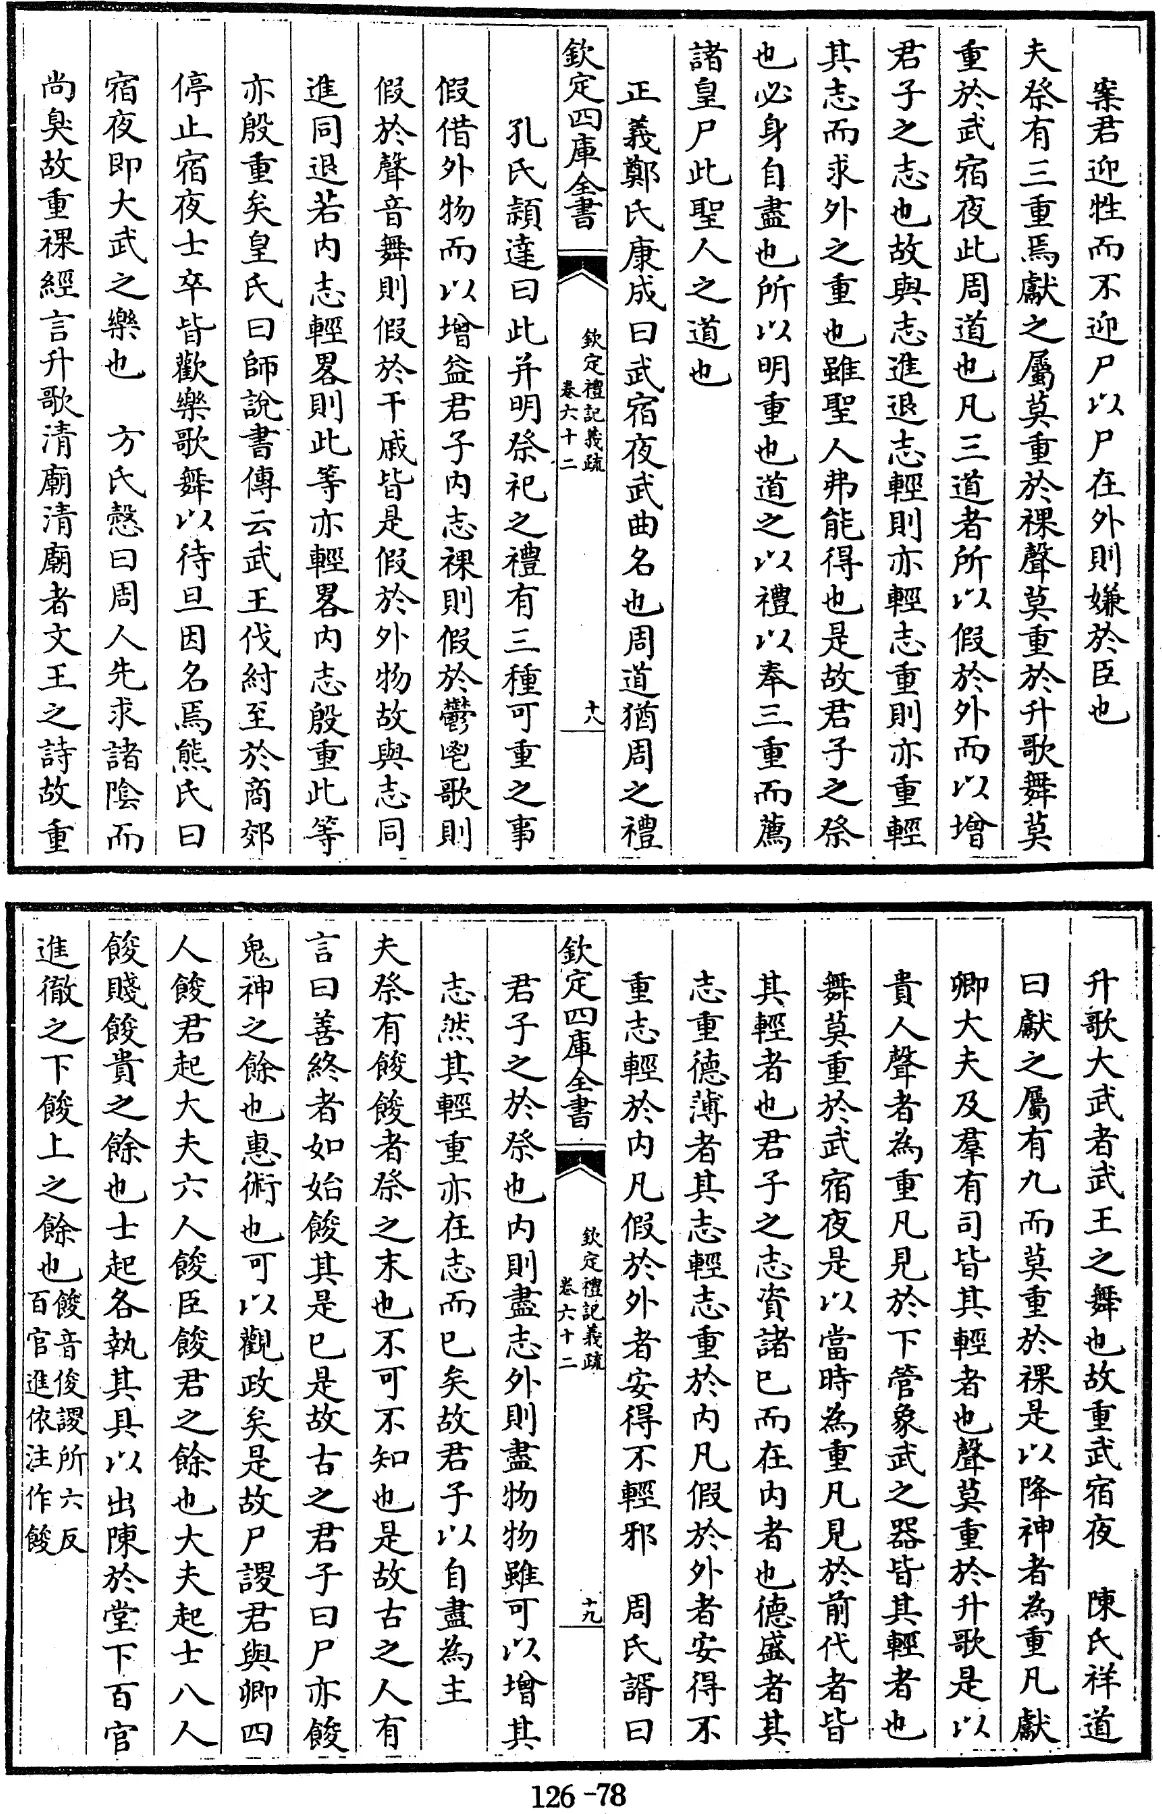 案君迎牲而不迎尸以尸在外則嫌於臣也
夫祭有三重焉獻之屬莫重於祼聲莫重於升歌舞莫
重於武宿夜此周道也凡三道者所以假於外而以增
君子之志也故與志進退志輕則亦輕志重則亦重輕
其志而求外之重也雖聖人弗能得也是故君子之祭
也必身自盡也所以明重也道之以禮以奉三重而薦
諸皇尸此聖人之道也
正義鄭氏康成曰武宿夜武曲名也周道猶周之禮
欽定四庫全書
欽定禮記義疏
卷六十二
十八
孔氏穎達曰此并明祭祀之禮有三種可重之事
假借外物而以增益君子內志祼則假於鬱鬯歌則
假於聲音舞則假於干戚皆是假於外物故與志同
進同退若內志輕畧則此等亦輕畧內志殷重此等
亦殷重矣皇氏曰師說書傳云武王伐紂至於商郊
停止宿夜士卒皆歡樂歌舞以待旦因名焉熊氏曰
宿夜即大武之樂也　方氏慤曰周人先求諸陰而
尚臭故重祼經言升歌清廟清廟者文王之詩故重
升歌大武者武王之舞也故重武宿夜　陳氏祥道
曰獻之屬有九而莫重於祼是以降神者為重凡獻
卿大夫及羣有司皆其輕者也聲莫重於升歌是以
貴人聲者為重凡見於下管象武之器皆其輕者也
舞莫重於武宿夜是以當時為重凡見於前代者皆
其輕者也君子之志資諸已而在內者也德盛者其
志重德薄者其志輕志重於內凡假於外者安得不
重志輕於內凡假於外者安得不輕邪　周氏諝曰
欽定四庫全書
欽定禮記義疏
卷六十二
十九
君子之於祭也內則盡志外則盡物物雖可以增其
志然其輕重亦在志而已矣故君子以自盡為主
夫祭有餕餕者祭之末也不可不知也是故古之人有
言曰善終者如始餕其是已是故古之君子曰尸亦餕
鬼神之餘也惠術也可以觀政矣是故尸謖君與卿四
人餕君起大夫六人餕臣餕君之餘也大夫起士八人
餕賤餕貴之餘也士起各執其具以出陳於堂下百官
進徹之下餕上之餘也餕音俊謖所六反
百官進依注作餕
126-78